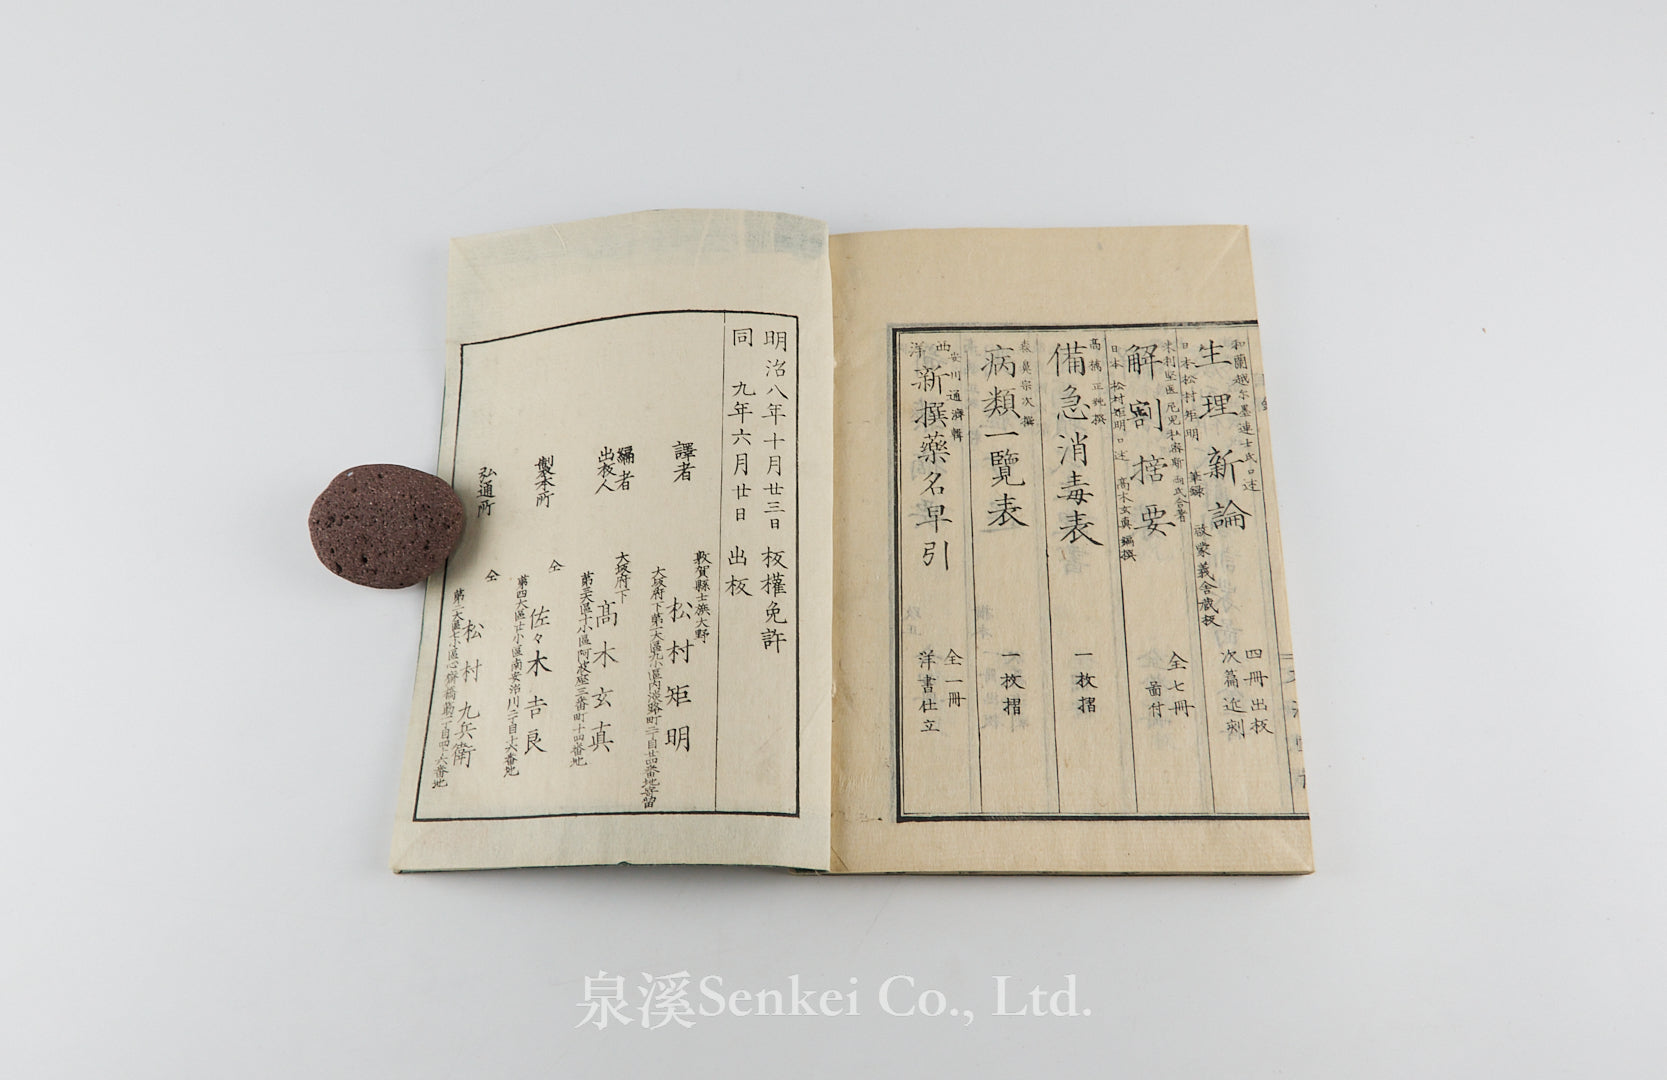 和蘭越尓墨連士氏口述
日本松村矩明筆録
生理新論
啟蒙義舎蔵板
四冊出板
次篇近刻
日本松村矩明口述
高木玄真編撰
解剖捨要
全七冊
啚付
高橋正純撰
備急消毒表
一枚摺
森鼻宗次撰
病類一覽表
一枚摺
安川通濟輯
西洋新撰藥名早引
全一冊
洋書仕立
明治八年十月廿三日板權免許
同九年六月廿日出板
敦賀縣士族大野
譯者松村矩明
大坂府下第一大區九小區内淡路町二丁目廿四番地寄留
大坂府下
編者
出板人高木玄真
第三大區十小區阿波座三番町十四番地
仝
製本所佐々木吉良
第四大區廿小區南安治川二丁目十六番地
仝
弘通所松村九兵衛
第二大區七小區心齋橋筋一丁目四十六番地
泉溪Senkei Co., Ltd.